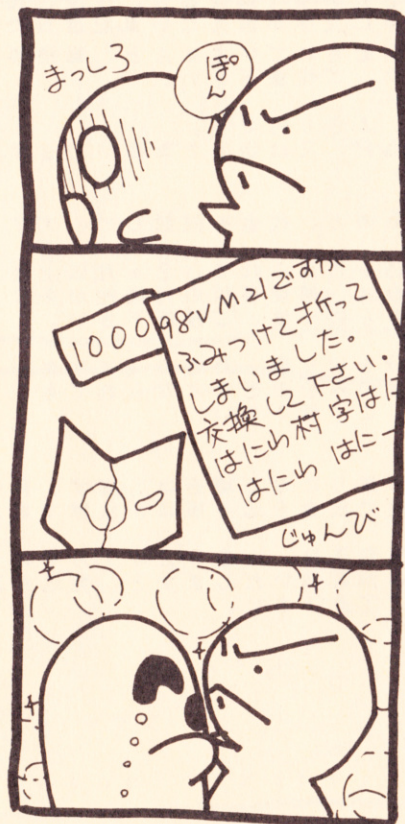 まっしろ
ぽん
1000
98VM21ですが
ふみつけて折って
しまいました。
交換して下さい.
はにわ村字はに
はにわ はにー
じゅんび